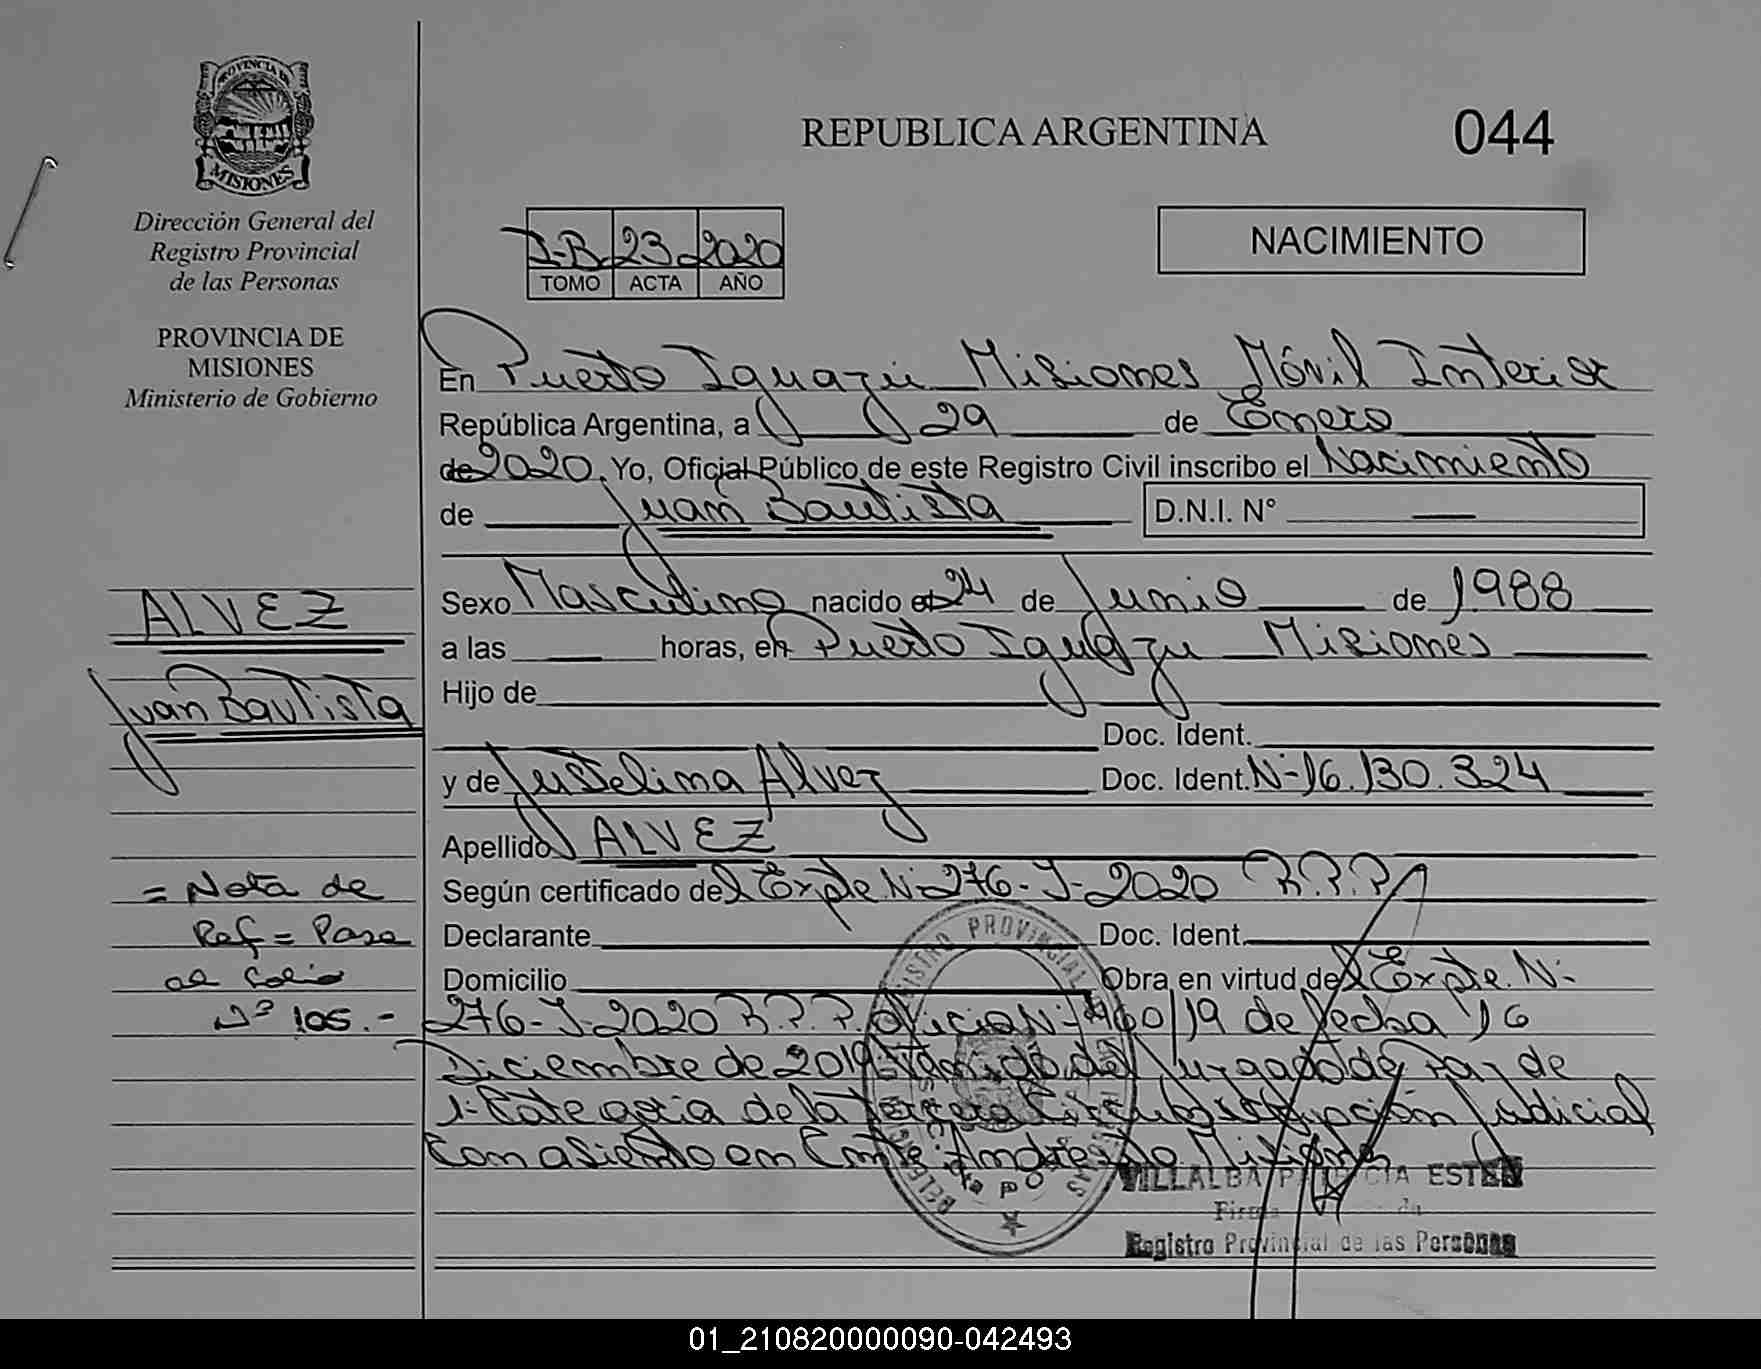 PROVINCIA DE
MISIONES
Dirección General del
Registro Provincial
de las Personas
PROVINCIA DE
MISIONES
Ministerio de Gobierno
REPUBLICA ARGENTINA
044
23 2020
TOMO ACTA AÑO
NACIMIENTO
En Puerto Iguazú Misiones Móvil Interior
República Argentina, a 29 de Enero
de 2020. Yo, Oficial Público de este Registro Civil inscribo el Nacimiento
de Juan Bautista D.N.I. N° —
Sexo Masculino nacido el 24 de Junio de 1988
a las — horas, en Puerto Iguazu Misiones
Hijo de
Doc. Ident.
y de Justelina Alvez Doc. Ident. N- 16.130.324
Apellido ALVEZ
Según certificado del Expte. N- 276-J-2020 R.P.P.
Declarante Doc. Ident.
Domicilio Obra en virtud del Expte. N-
276-J-2020 R.P.P. Oficio N- 60/19 de fecha 16
Diciembre de 2019 del Juzgado de Paz de
1- Categoria de la Tercera Judicial
Con asiento en Cmte. Andresito Misiones
ALVEZ
Juan Bautista
= Nota de
Ref = Pasa
al Folio
N° 105.-
REGISTRO PROVINCIAL DE LAS PERSONAS
VILLALBA PATRICIA ESTER
Registro Provincial de las Personas
01_210820000090-042493